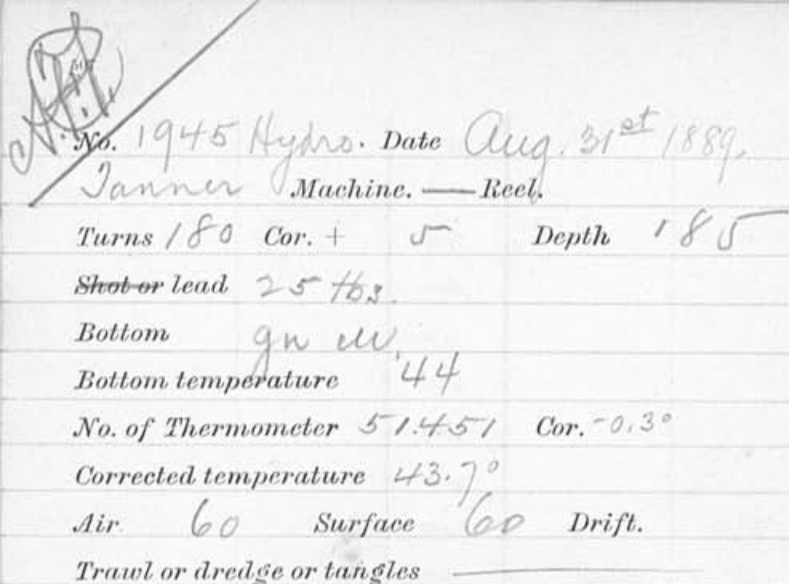 No. 1945 Hydro. Date Aug. 31st 1889.
Tanner Machine. — Reel.
Turns 180 Cor. + 5 Depth 185
Shot or lead 25 lbs.
Bottom gn M.
Bottom temperature 44
No. of Thermometer 51.451 Cor. -0.3°
Corrected temperature 43.7°
Air 60 Surface 60 Drift.
Trawl or dredge or tangles —